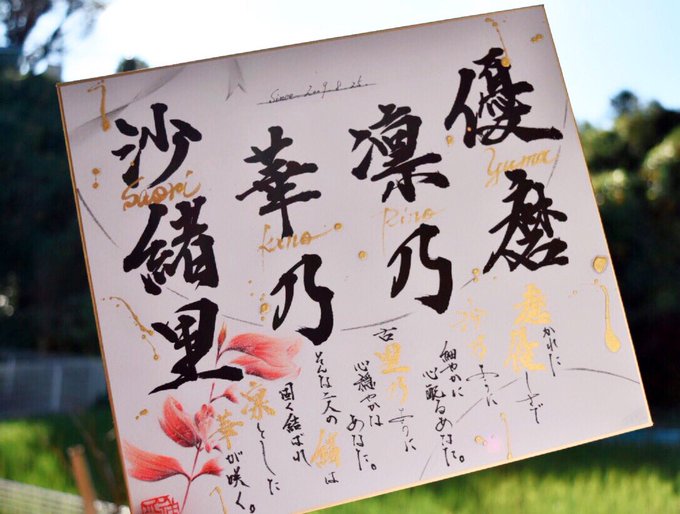 Since 2009.8.26.
優磨
Yuma
凛乃
Rino
華乃
Kano
沙緒里
Saori
かれた
しさで
ように
細やかに
心配るあなた。
古里乃ように
心穏やかな
あなた。
そんな二人の緒は
固く結ばれ
凛とした
華が咲く。